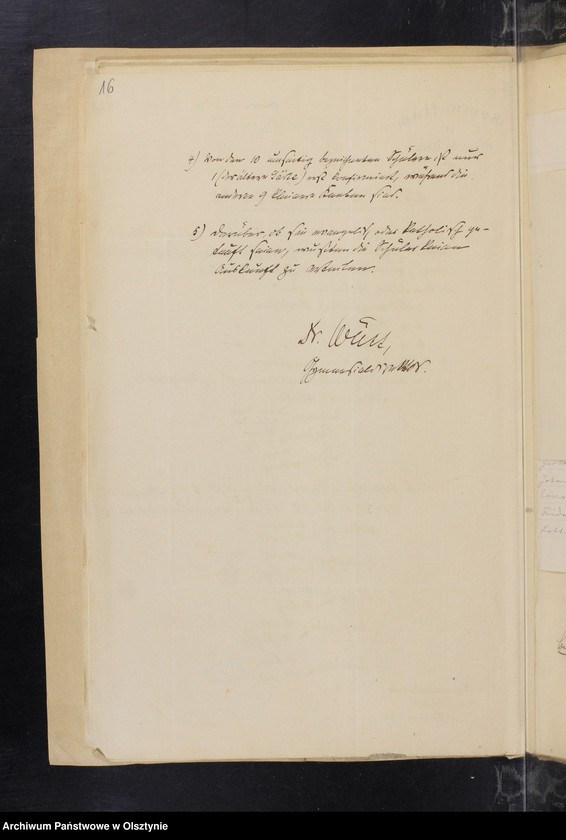 16
4) Von den 10 umseitig bezeichneten Schülern ist nur
1 (der ältere) erst konfirmiert, während die
anderen 9 kleinere Knaben sind.
5) Darüber, ob sie evangelisch oder katholisch ge-
tauft seien, wußten die Schüler keine
Auskunft zu erteilen.
Dr. Wüst,
Gymnasialdirektor.
Archiwum Państwowe w Olsztynie